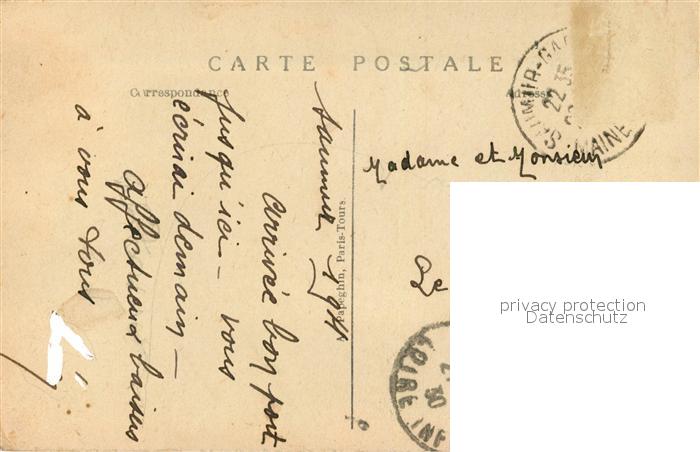 CARTE POSTALE
Correspondance
Adresse
Saumur
Arrivée bon port
jusqu'ici - vous
écrirai demain -
Affectueux baisers
à vous tous
Papeghin, Paris-Tours.
Madame et Monsieur
Le
SAUMUR-GA
22 35
MAINE
OIRE INF
30
privacy protection
Datenschutz